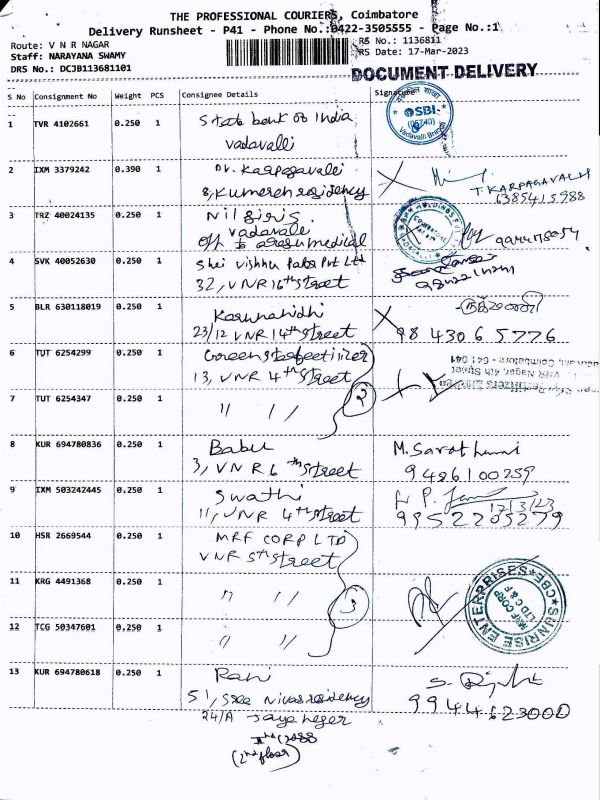 THE PROFESSIONAL COURIERS, Coimbatore
Delivery Runsheet - P41 - Phone No.:0422-3505555 - Page No.:1
Route: V N R NAGAR
Staff: NARAYANA SWAMY
DRS No.: DCJB113681101
RS No.: 1136811
RS Date: 17-Mar-2023
DOCUMENT DELIVERY
S No Consignment No Weight PCS Consignee Details Signature
1 TVR 4102661 0.250 1 State bank of India
vadavalli
SBI
Vadavalli Branch
2 IXM 3379242 0.390 1 Dr. Karpagavalli
8, Kumaran residency
T. KARPAGAVALLI
6385415988
3 TRZ 40024135 0.250 1 Nilgiris
vadavalli
opp to arasu medical
4 SVK 40052630 0.250 1 Shri Vishnu Labs Pvt Ltd
32, VNR 16th street
5 BLR 630118019 0.250 1 Karunanidhi
23/12 VNR 14th street
98 43065776
6 TUT 6254299 0.250 1 Greenstarfertilizer
13, VNR 4th street
VNR Nagar, 4th Street
Coimbatore - 641 041
7 TUT 6254347 0.250 1 " " 2
8 KUR 694780836 0.250 1 Babu
3, VNR 6th street
M. Sarathumi
9486100259
9 IXM 503242445 0.250 1 Swathi
11, VNR 4th street
17/3/23
9952205279
10 HSR 2669544 0.250 1 MRF CORP LTD
VNR 5th street
11 KRG 4491368 0.250 1 " " 3
SUNRISE ENTERPRISES
CBE
MRF CORP
LTD C & F
12 TCG 50347601 0.250 1 " "
13 KUR 694780618 0.250 1 Rani
51, Sree Nivas residency
24/A Jaya nagar
(2nd floor)
9944623000